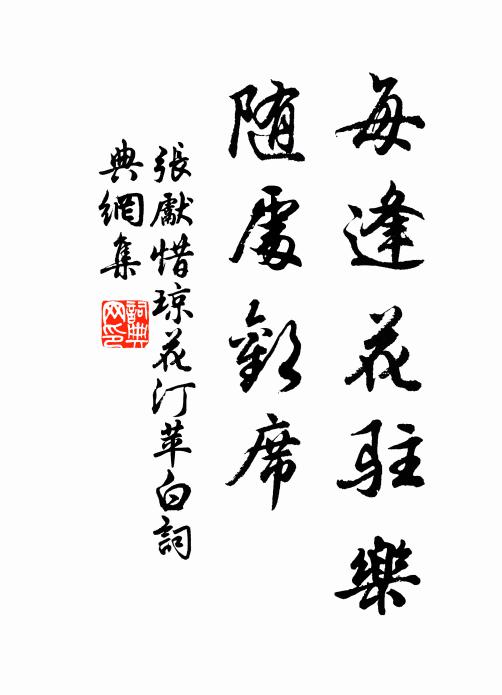 每逢花駐樂
随處歡席
張獻惜琼花汀苹白詞
典網集
詞典網印